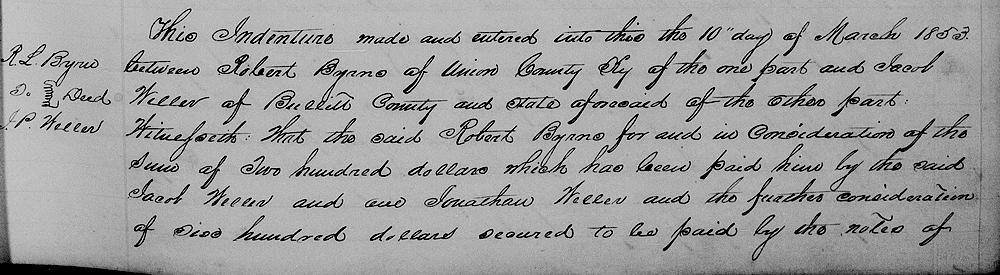 R. L. Byrne
To Deed
J. P. Weller
This Indenture made and entered into this the 10" day of March 1853
between Robert Byrne of Union County Ky of the one part and Jacob
Weller of Bullitt County and State aforesaid of the other part:
Witnesseth: That the said Robert Byrne for and in Consideration of the
Sum of Two hundred dollars which has been paid him by the said
Jacob Weller and one Jonathan Weller and the further consideration
of Six hundred dollars secured to be paid by the notes of